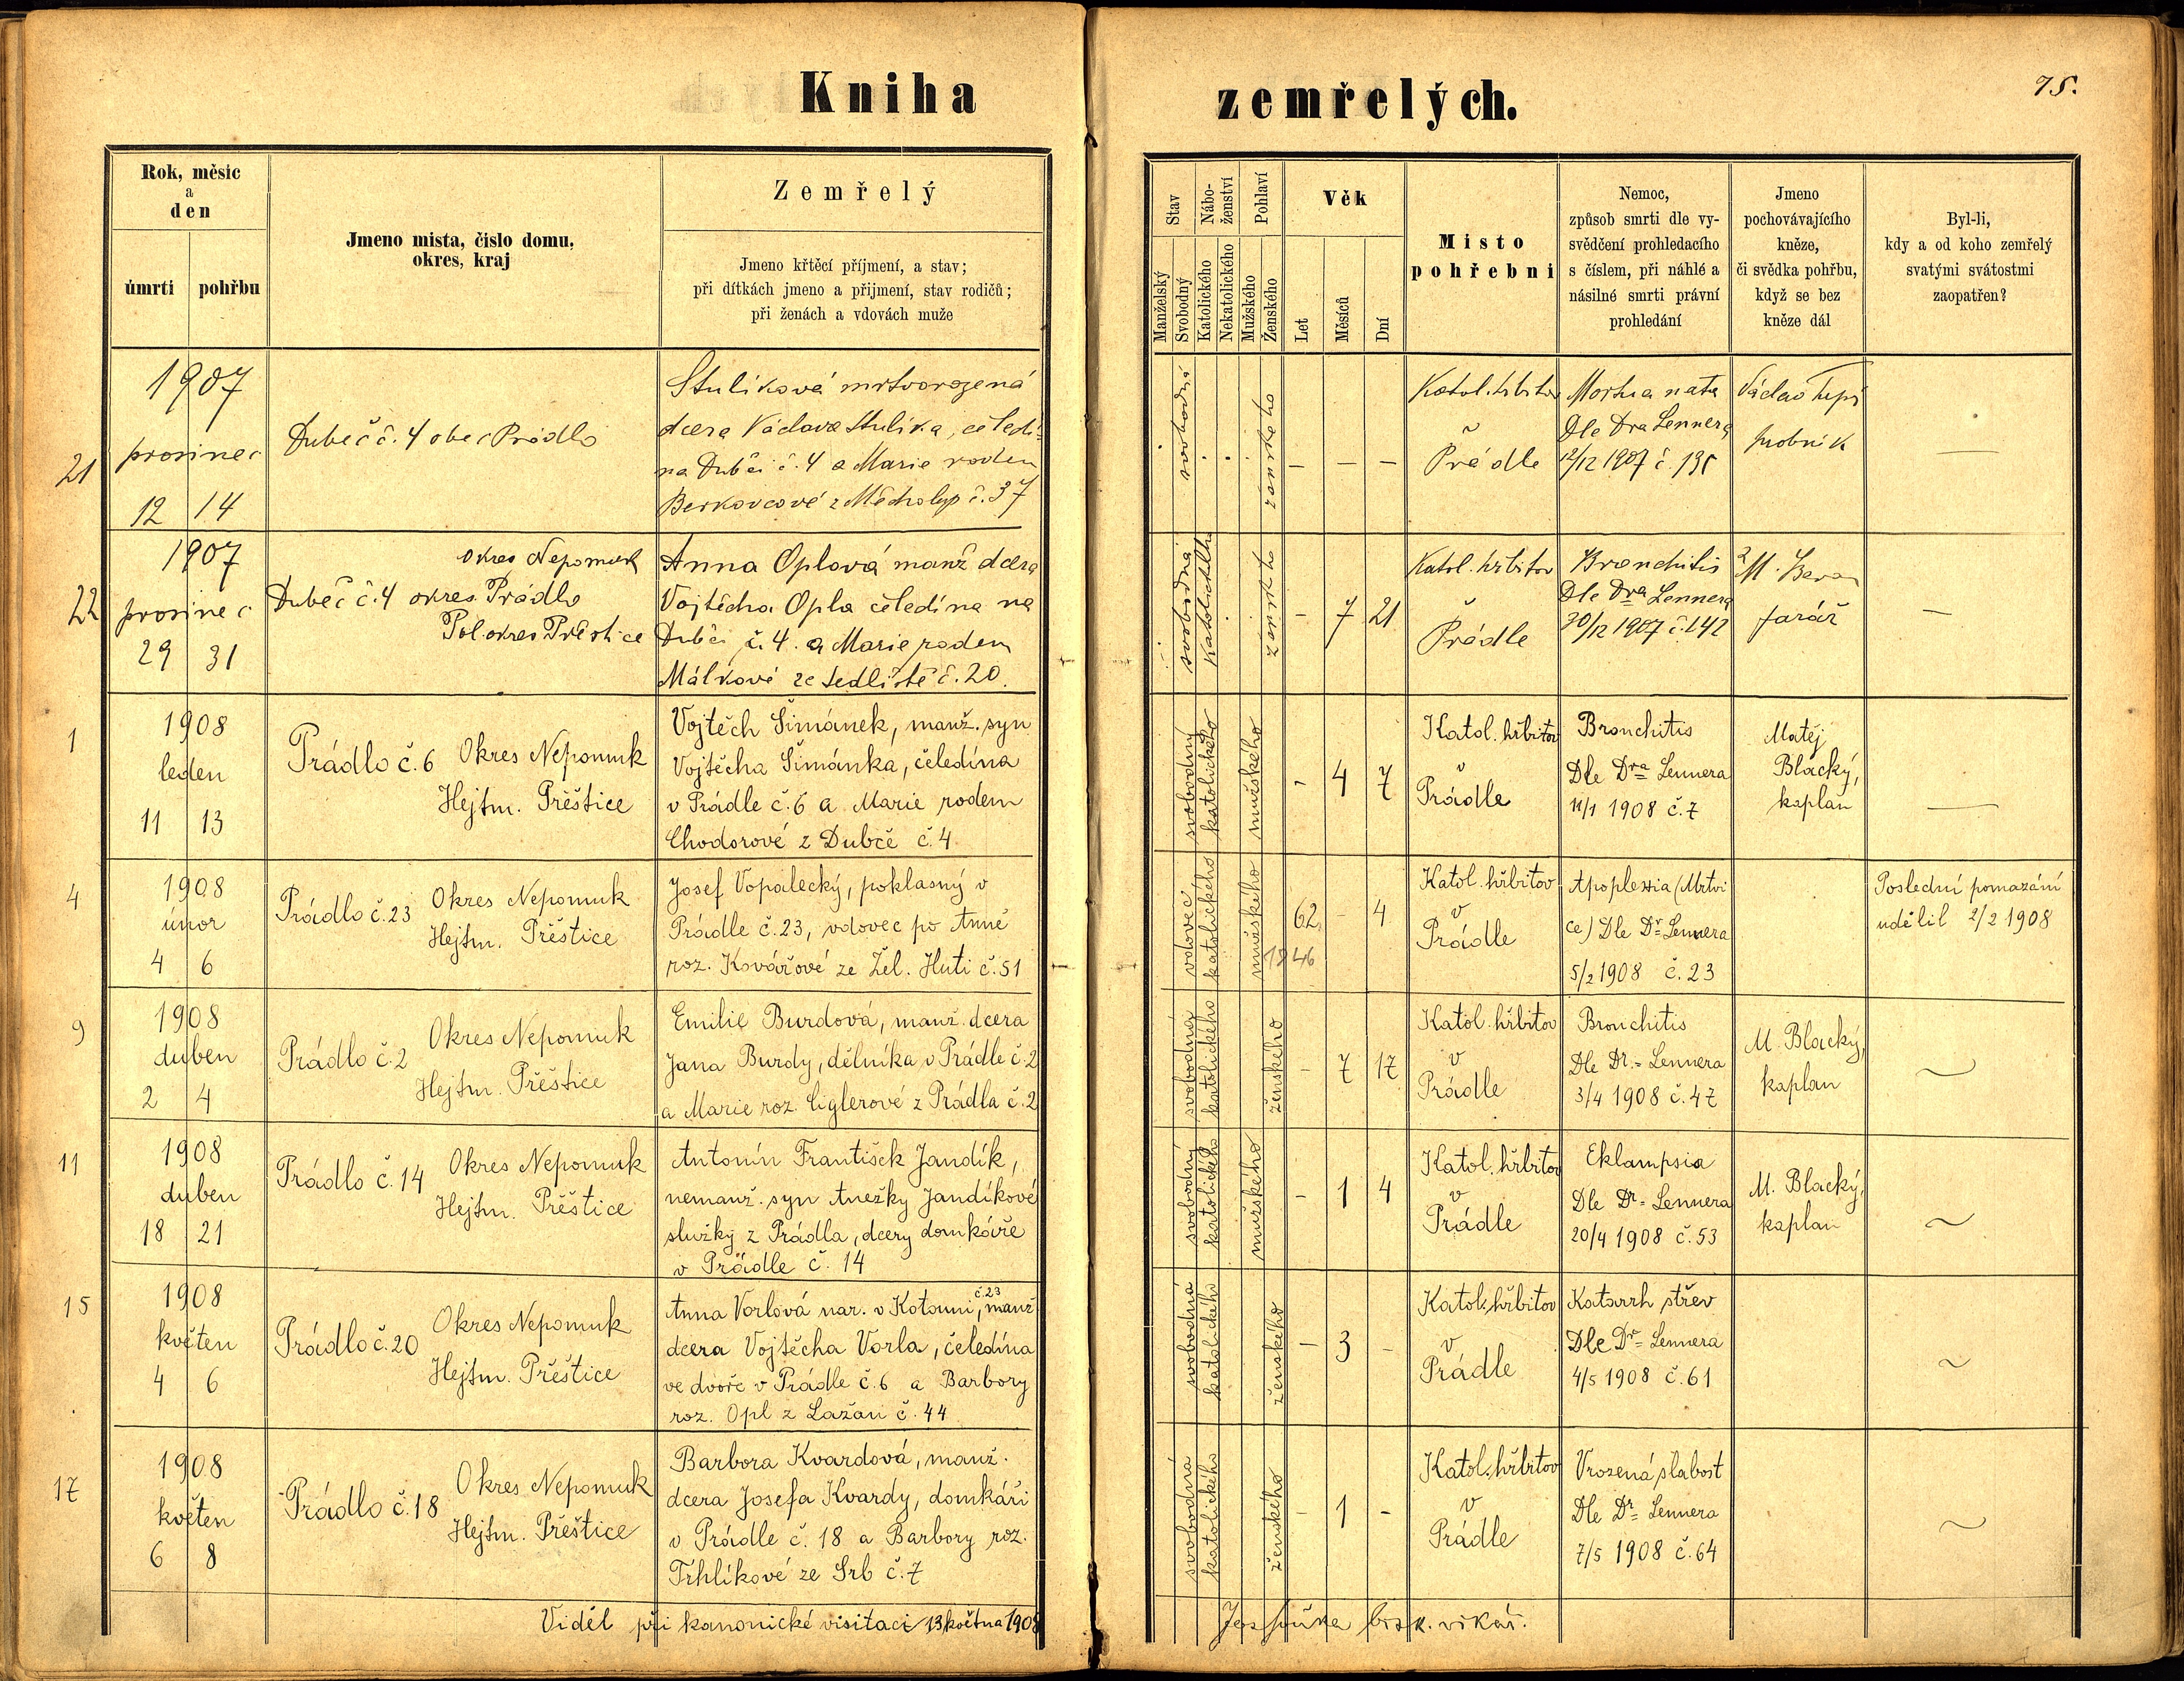 Kniha zemřelých.
75.
Rok, měsíc
a
den
úmrtí
pohřbu
Jmeno mista, čislo domu,
okres, kraj
Zemřelý
Jmeno křtěcí příjmení, a stav;
při dítkách jmeno a přijmení, stav rodičů;
při ženách a vdovách muže
Stav
Manželský
Svobodný
Nábo-
ženství
Katolického
Nekatolického
Pohlaví
Mužského
Ženského
Věk
Let
Měsíců
Dní
Misto
pohřebni
Nemoc,
způsob smrti dle vy-
svědčení prohledacího
s číslem, při náhlé a
násilné smrti právní
prohledání
Jmeno
pochovávajícího
kněze,
či svědka pohřbu,
když se bez
kněze dál
Byl-li,
kdy a od koho zemřelý
svatými svátostmi
zaopatřen?
21
1907
prosinec
12 14
Dubeč č. 4 obec Prádlo
Stulíková mrtvorozená
dcera Václava Stulíka, čeledí-
na Dubči č. 4 a Marie rodem
Berkovcové z Měcholup č. 37
svobodná
ženského
– – –
Katol. hřbitov
v
Prádle
Mortua nata
Dle Dra Lennera
12/12 1907 č. 135
Václav
hrobník
—
22
1907
prosinec
29 31
Okres Nepomuk
Dubeč č. 4 okres Prádlo
Pol. okres Přeštice
Anna Oplová manž dcera
Vojtěcha Opla čeledína na
Dubči č. 4. a Marie rodem
Málkové ze Sedliště č. 20.
svobodná
Katolického
ženského
– 7 21
Katol. hřbitov
v
Prádle
Bronchitis
Dle Dra Lennera
30/12 1907 č. 142
M. Beran
farář
—
1
1908
leden
11 13
Prádlo č. 6 Okres Nepomuk
Hejtm. Přeštice
Vojtěch Šimánek, manž. syn
Vojtěcha Šimánka, čeledína
v Prádle č. 6 a Marie rodem
Chodorové z Dubče č. 4
svobodný
katolického
mužského
– 4 7
Katol. hřbitov
v
Prádle
Bronchitis
Dle Dra Lennera
11/1 1908 č. 7
Matěj
Blacký,
kaplan
—
4
1908
únor
4 6
Prádlo č. 23 Okres Nepomuk
Hejtm. Přeštice
Josef Vopalecký, poklasný v
Prádle č. 23, vdovec po Anně
roz. Kovářové ze Žel. Huti č. 51
vdovec
katolického
mužského
62 – 4
1846
Katol. hřbitov
v
Prádle
Apoplexia (Mrtvi
ce) Dle Dr Lennera
5/2 1908 č. 23
Poslední pomazání
udělil 2/2 1908
9
1908
duben
2 4
Prádlo č. 2 Okres Nepomuk
Hejtm. Přeštice
Emilie Burdová, manž. dcera
Jana Burdy, dělníka v Prádle č. 2
a Marie roz. Ciglerové z Prádla č. 2
svobodná
katolického
ženského
– 7 17
Katol. hřbitov
v
Prádle
Bronchitis
Dle Dr. Lennera
3/4 1908 č. 47
M. Blacký,
kaplan
~
11
1908
duben
18 21
Prádlo č. 14 Okres Nepomuk
Hejtm. Přeštice
Antonín František Jandík,
nemanž. syn Anežky Jandíkové
služky z Prádla, dcery domkáře
v Prádle č. 14
svobodný
katolického
mužského
– 1 4
Katol. hřbitov
v
Prádle
Eklampsia
Dle Dr Lennera
20/4 1908 č. 53
M. Blacký,
kaplan
~
15
1908
květen
4 6
Prádlo č. 20 Okres Nepomuk
Hejtm. Přeštice
Anna Vorlová nar. v Kotouni č. 23, manž.
dcera Vojtěcha Vorla, čeledína
ve dvoře v Prádle č. 6 a Barbory
roz. Opl z Lažan č. 44
svobodná
katolického
ženského
– 3 –
Katol. hřbitov
v
Prádle
Katarrh střev
Dle Dr Lennera
4/5 1908 č. 61
~
17
1908
květen
6 8
Prádlo č. 18 Okres Nepomuk
Hejtm. Přeštice
Barbora Kvardová, manž.
dcera Josefa Kvardy, domkáři
v Prádle č. 18 a Barbory roz.
Trhlíkové ze Srb č. 7
svobodná
katolického
ženského
– 1 –
Katol. hřbitov
v
Prádle
Vrozená slabost
Dle Dr Lennera
7/5 1908 č. 64
~
Viděl při kanonické visitaci 13 května 1908
bisk. vikář.